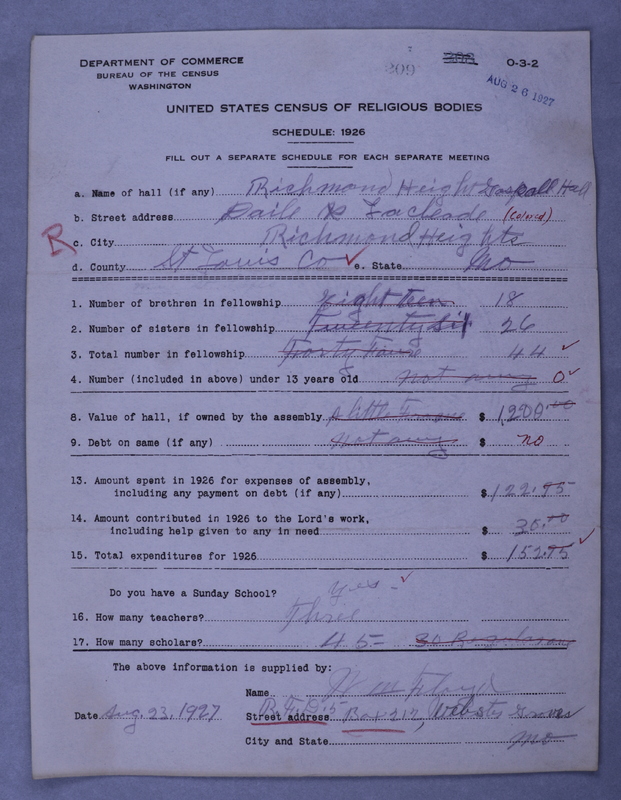 DEPARTMENT OF COMMERCE
BUREAU OF THE CENSUS
WASHINGTON
209
O-3-2
AUG 26 1927
UNITED STATES CENSUS OF RELIGIOUS BODIES
SCHEDULE: 1926
FILL OUT A SEPARATE SCHEDULE FOR EACH SEPARATE MEETING
a. Name of hall (if any) Richmond Height Gospall Hall
b. Street address Daile & Laclede (Colored)
R
c. City Richmond Heights
d. County St Louis Co e. State Mo
1. Number of brethren in fellowship Eighteen 18
2. Number of sisters in fellowship Twentysix 26
3. Total number in fellowship 44
4. Number (included in above) under 13 years old not any 0
8. Value of hall, if owned by the assembly a little Frame $ 1200.00
9. Debt on same (if any) not any $ no
13. Amount spent in 1926 for expenses of assembly,
including any payment on debt (if any) $ 122.95
14. Amount contributed in 1926 to the Lord's work,
including help given to any in need $ 30.00
15. Total expenditures for 1926 $ 152.95
Do you have a Sunday School? yes -
16. How many teachers? three
17. How many scholars? 45 = 30
The above information is supplied by:
Name Wm Floyd
Date Aug. 23. 1927 Street address R.F.D. 5 Box 217, Webster Groves
City and State Mo